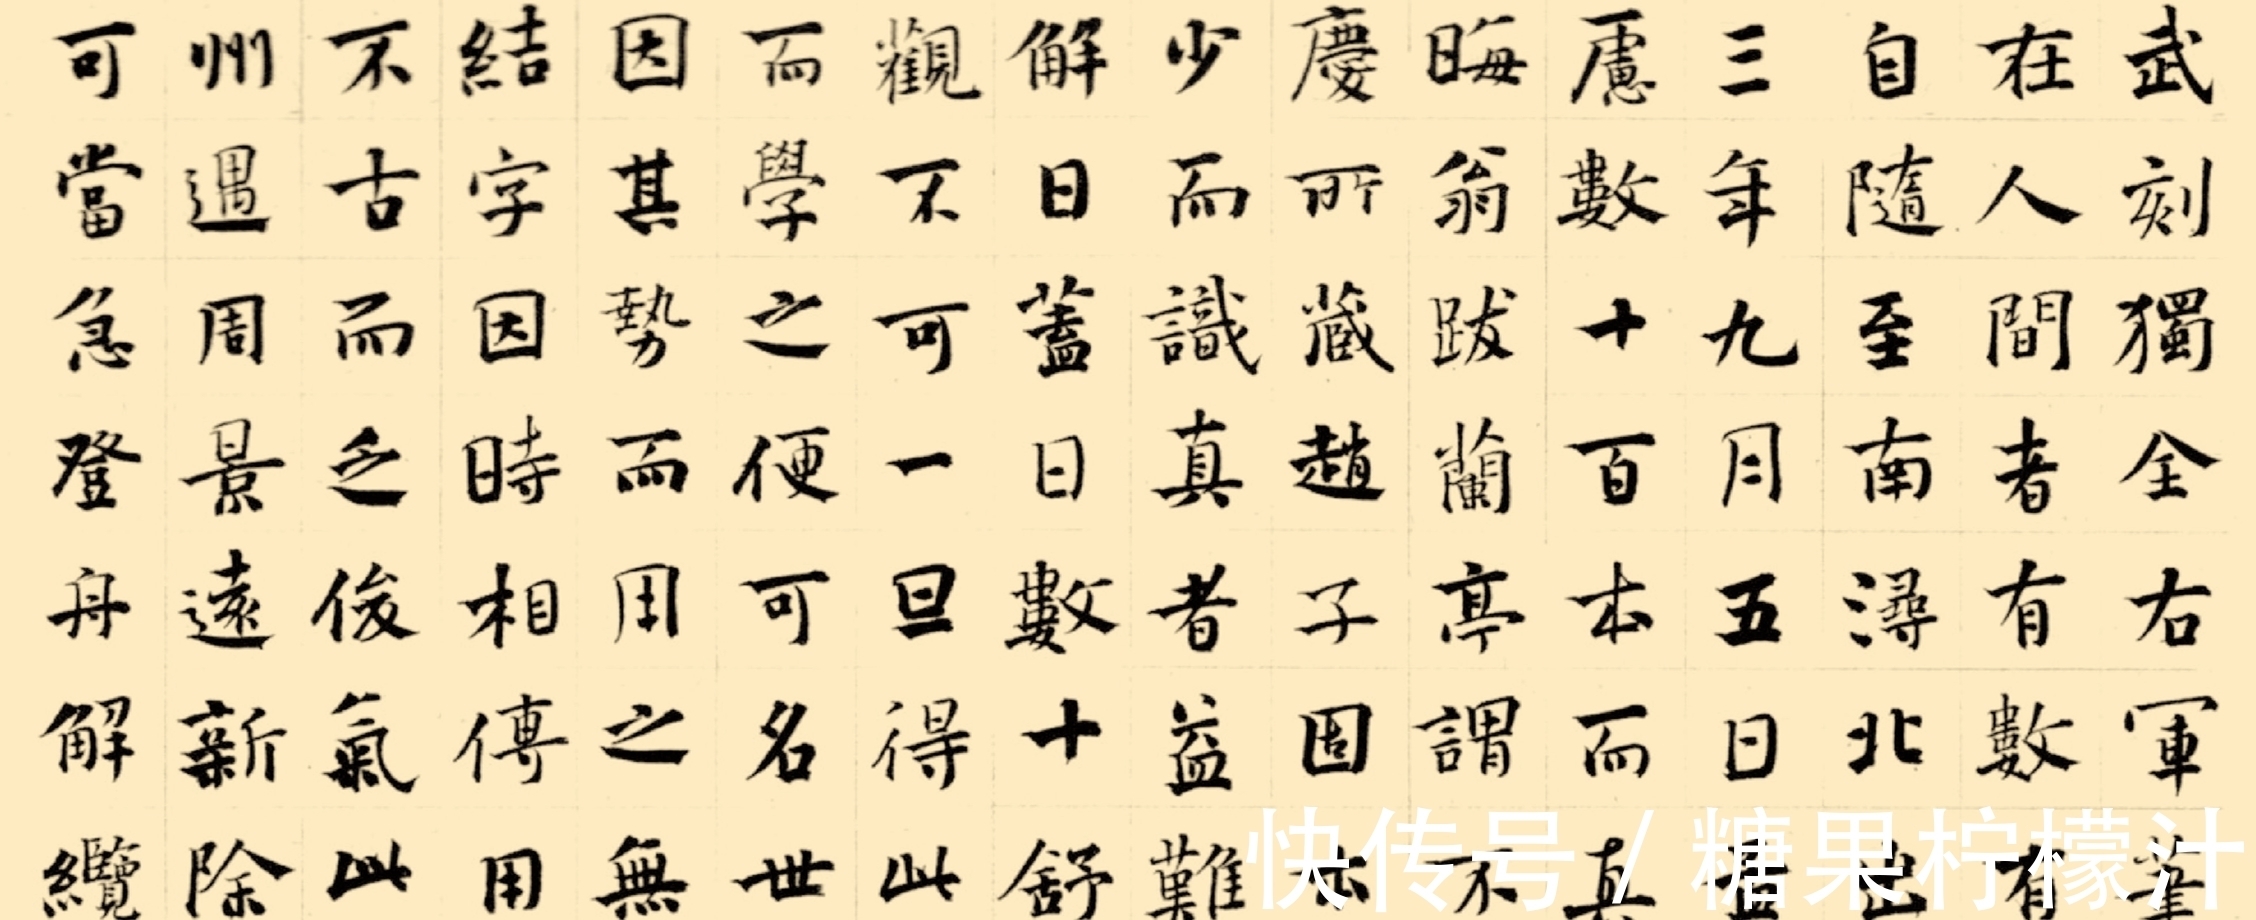 武刻獨全右軍筆
在人間者有數有
自隨至南潯北出
三年九月五日孟
慮數十百本而真
晦翁跋蘭亭謂不
慶所藏趙子固本
少而識真者益難
解日蓋日數十舒
觀不可一旦得此
而學之便可名世
因其勢而用之無
結字因時相傳用
不古而乏俊氣此
州遇周景遠新除
可當急登舟解纜
快传号 / 糖果柠檬汁